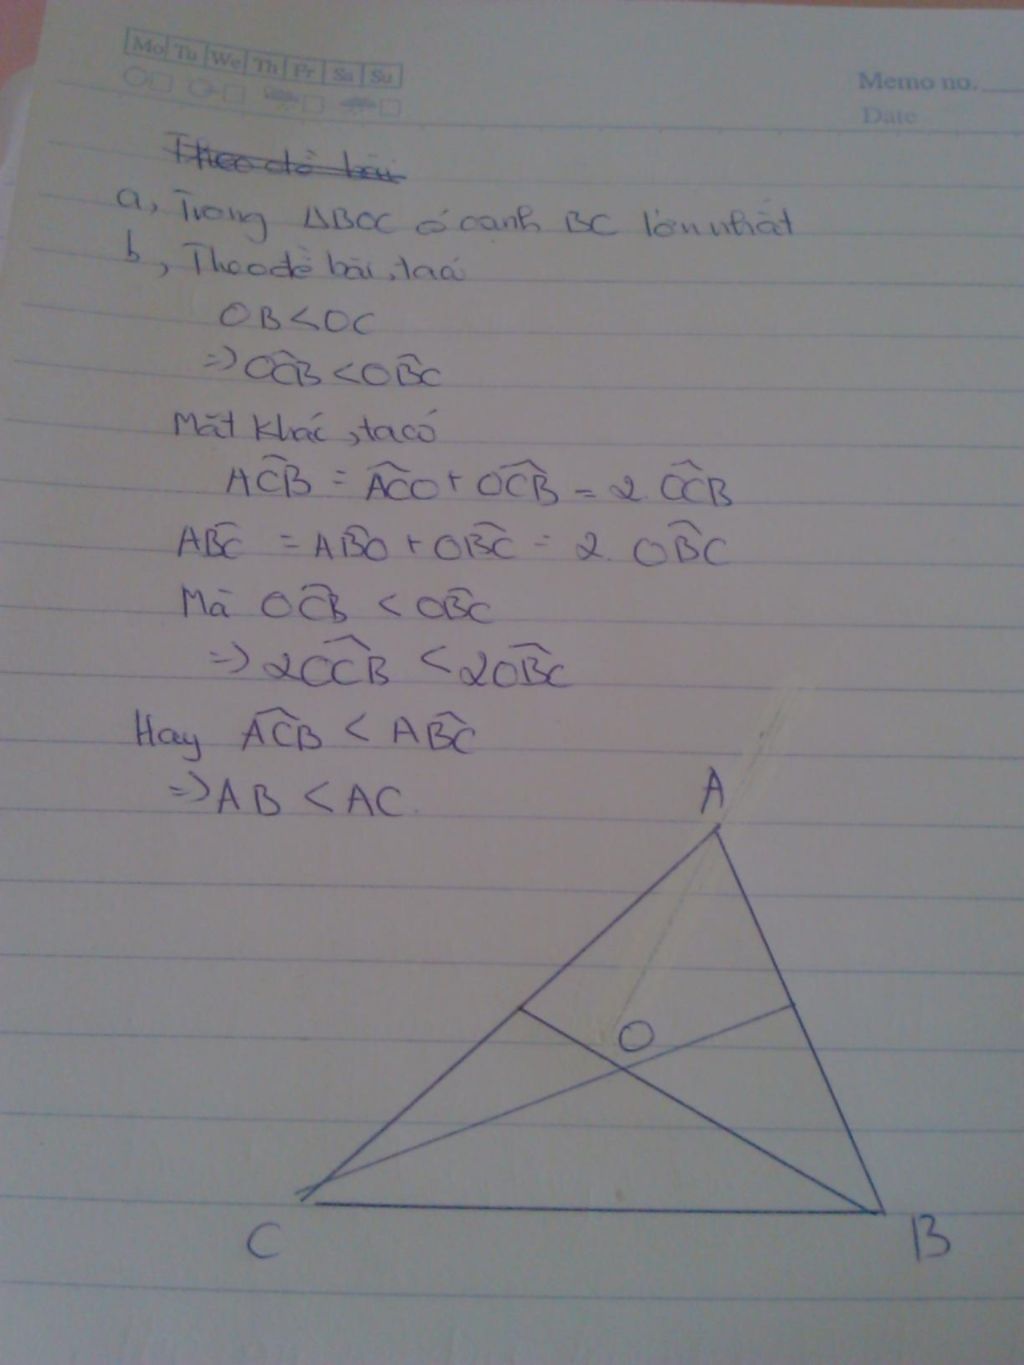 Mo Tu We Th Fr Sa Su
Memo no.
Date
Theo đề bài
a, Trong ΔBOC có cạnh BC lớn nhất
b, Theo đề bài, ta có
OB < OC
=> OĈB < OB̂C
Mặt khác, ta có
AĈB = AĈO + OĈB = 2. OĈB
AB̂C = AB̂O + OB̂C = 2. OB̂C
Mà OĈB < OB̂C
=> 2OĈB < 2OB̂C
Hay AĈB < AB̂C
=> AB < AC.
A
O
C
B